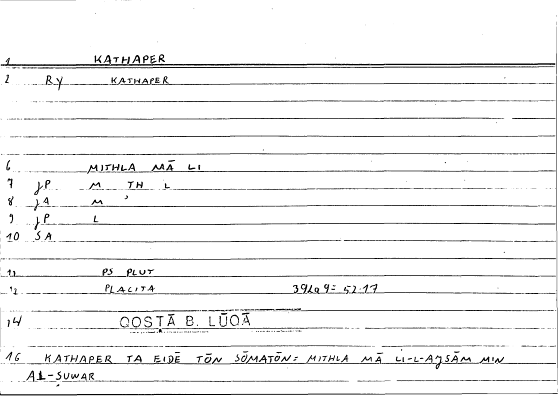 1 KATHAPER
2 Ry KATHAPER
6 MITHLA MĀ LI
7 jP M TH L
8 jA M ʾ
9 jP L
10 SA
11 PS PLUT
12 PLACITA 392a9= 52.17
14 QOSṬĀ B. LŪQĀ
16 KATHAPER TA EIDĒ TŌN SŌMATŌN= MITHLA MĀ LI-L-AǧSĀM MIN
AL-ṢUWAR